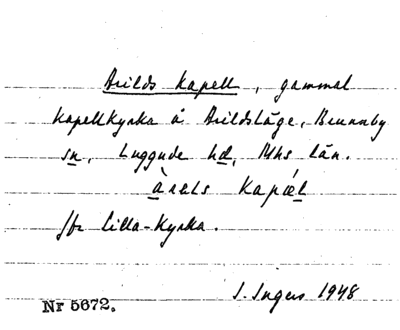 Arilds Kapell, gammal
kapellkyrka å Arildsläge, Brunnby
sn, Luggude hd, Mhs län.
àrels Kapǽl
jfr Lilla-Kyrka.
I. Ingers 1948
Nr 5672.